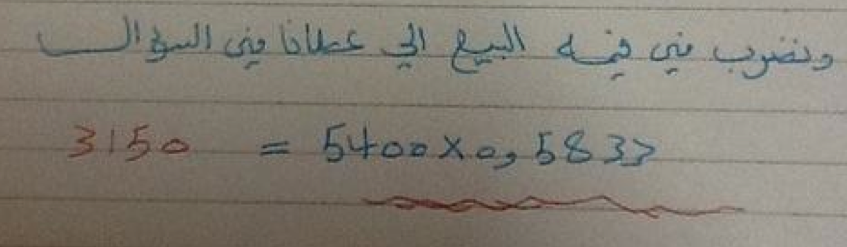 ونضرب في قيمه البيع الي عطانا في السؤال
3150 = 5400×0,5833